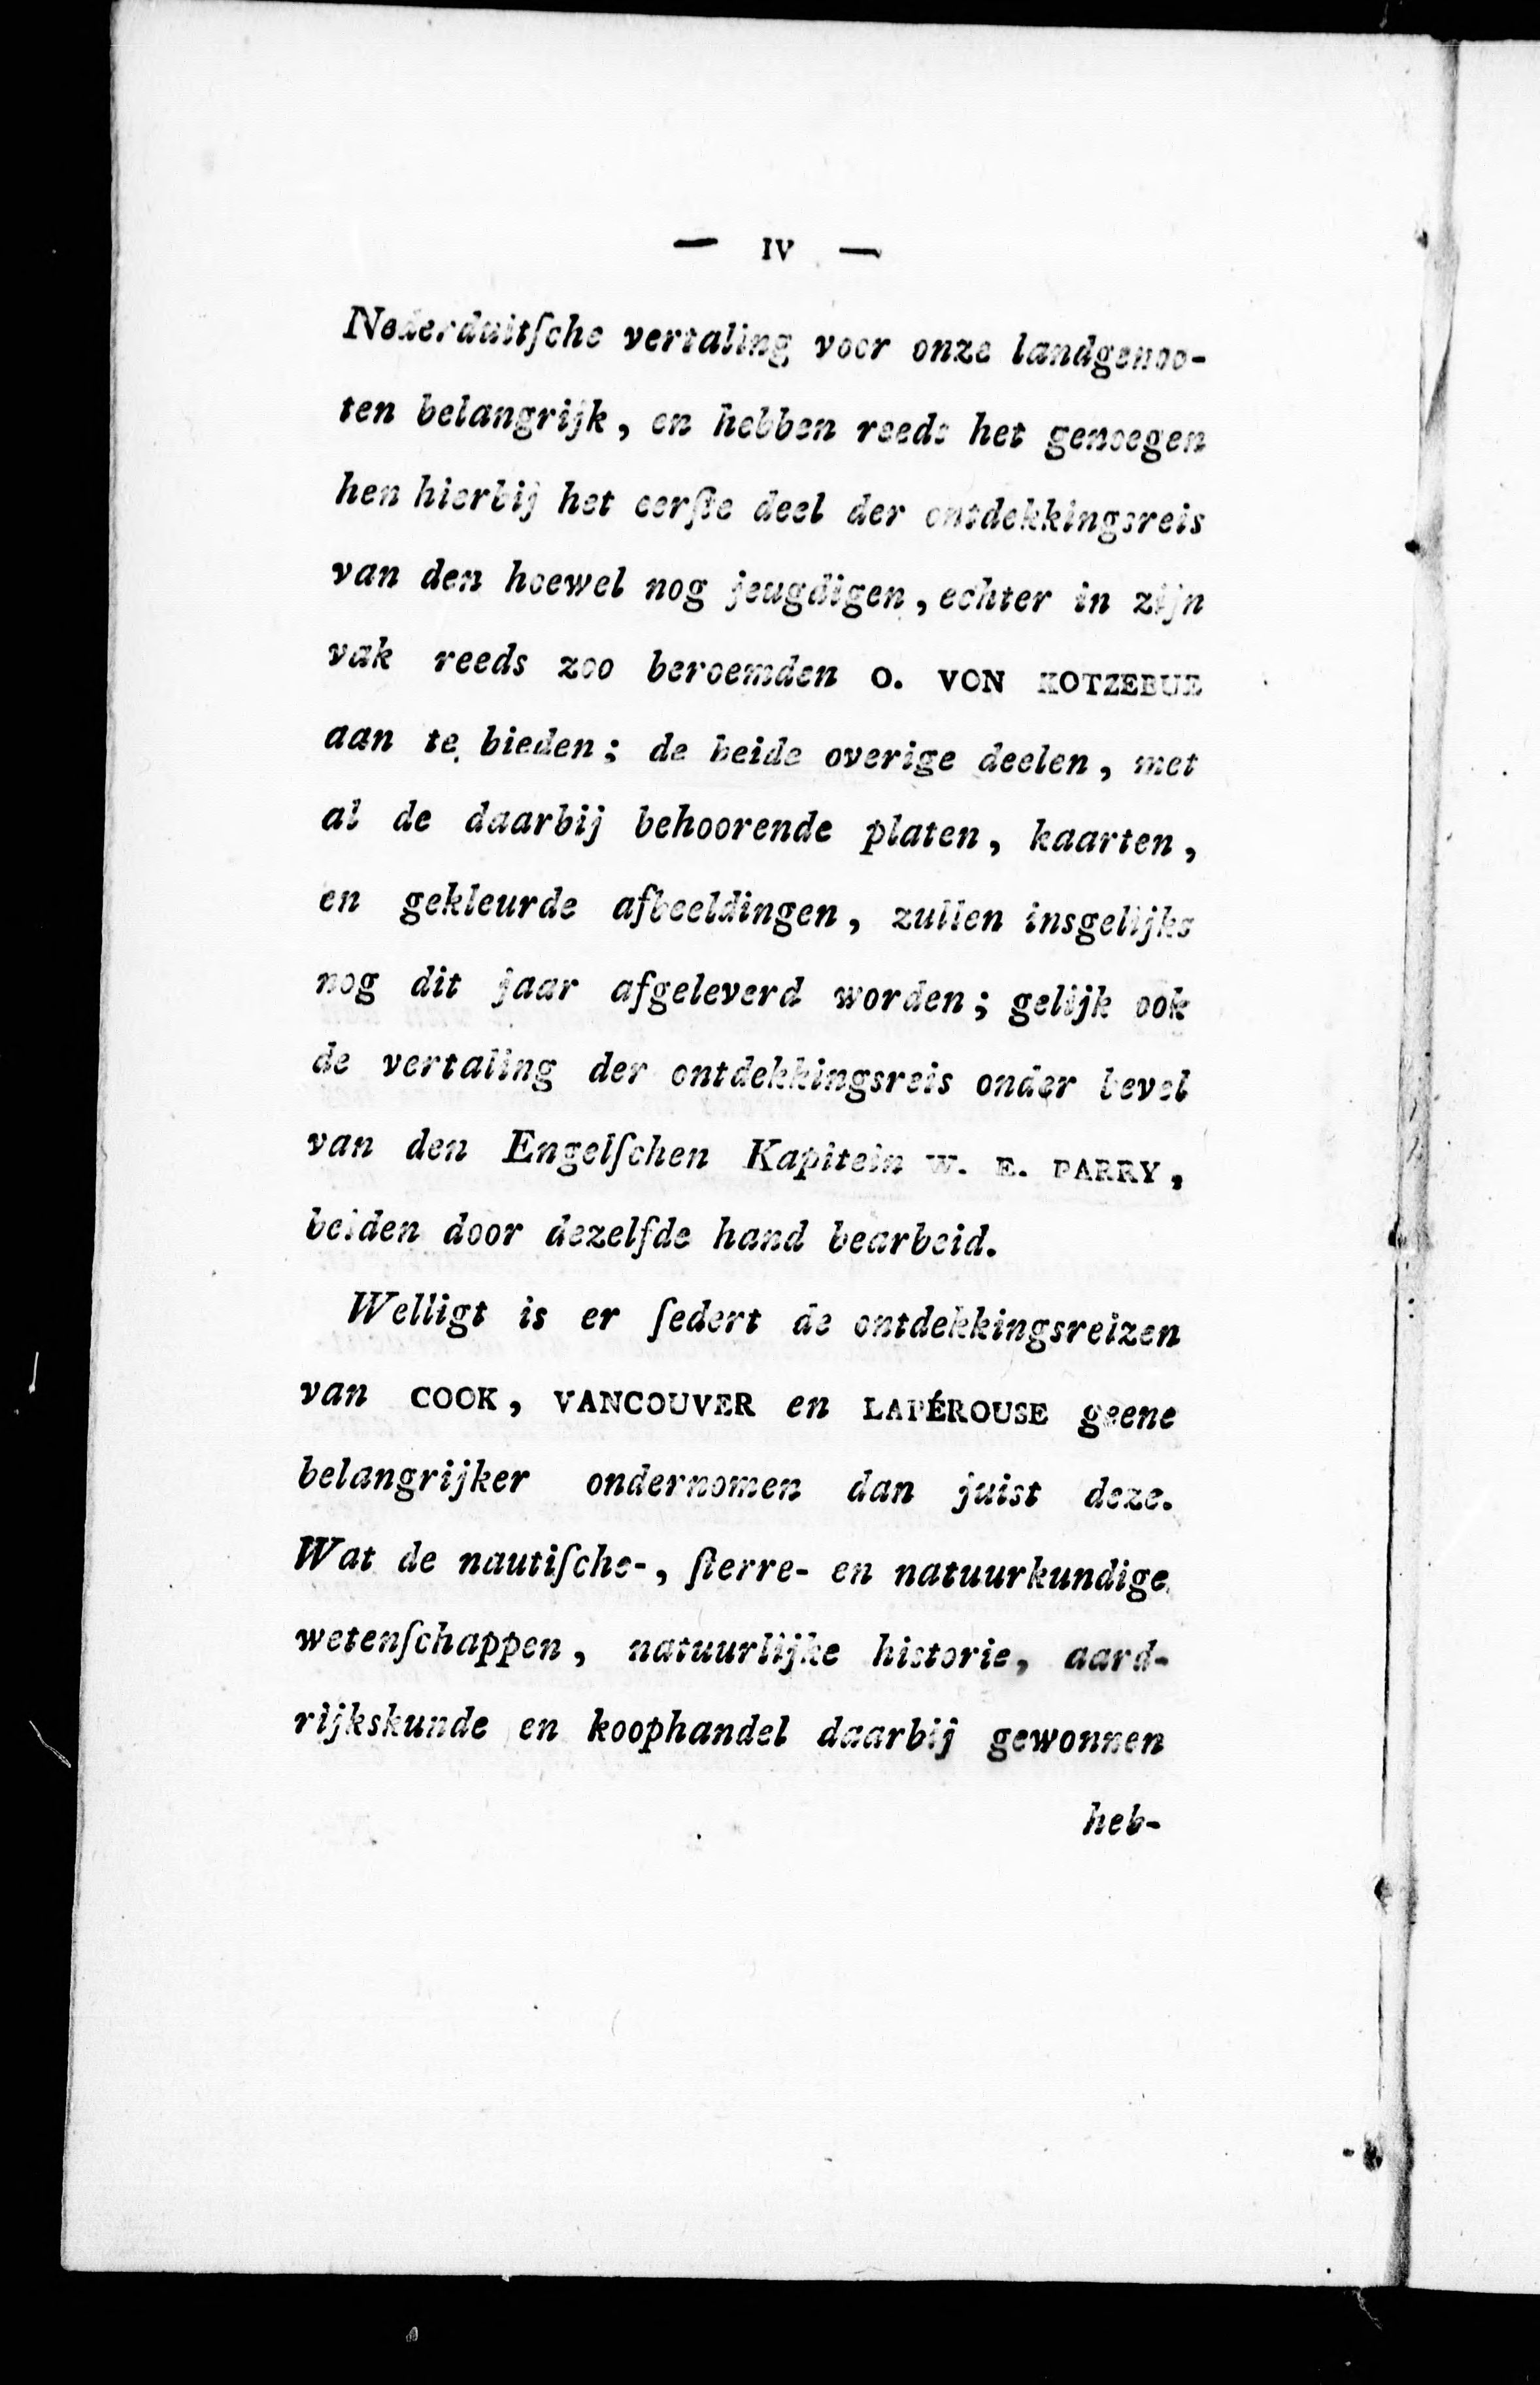 — IV —
Nederduitſche vertaling voor onze landgenoo-
ten belangrijk, en hebben reeds het genoegen
hen hierbij het eerſte deel der ontdekkingsreis
van den hoewel nog jeugdigen, echter in zijn
vak reeds zoo beroemden O. VON KOTZEBUE
aan te bieden; de beide overige deelen, met
al de daarbij behoorende platen, kaarten,
en gekleurde afbeeldingen, zullen insgelijks
nog dit jaar afgeleverd worden; gelijk ook
de vertaling der ontdekkingsreis onder bevel
van den Engelſchen Kapitein W. E. PARRY,
beiden door dezelfde hand bearbeid.
Welligt is er ſedert de ontdekkingsreizen
van COOK, VANCOUVER en LAPÉROUSE geene
belangrijker ondernomen dan juist deze.
Wat de nautiſche-, ſterre- en natuurkundige
wetenſchappen, natuurlijke historie, aard-
rijkskunde en koophandel daarbij gewonnen
heb-